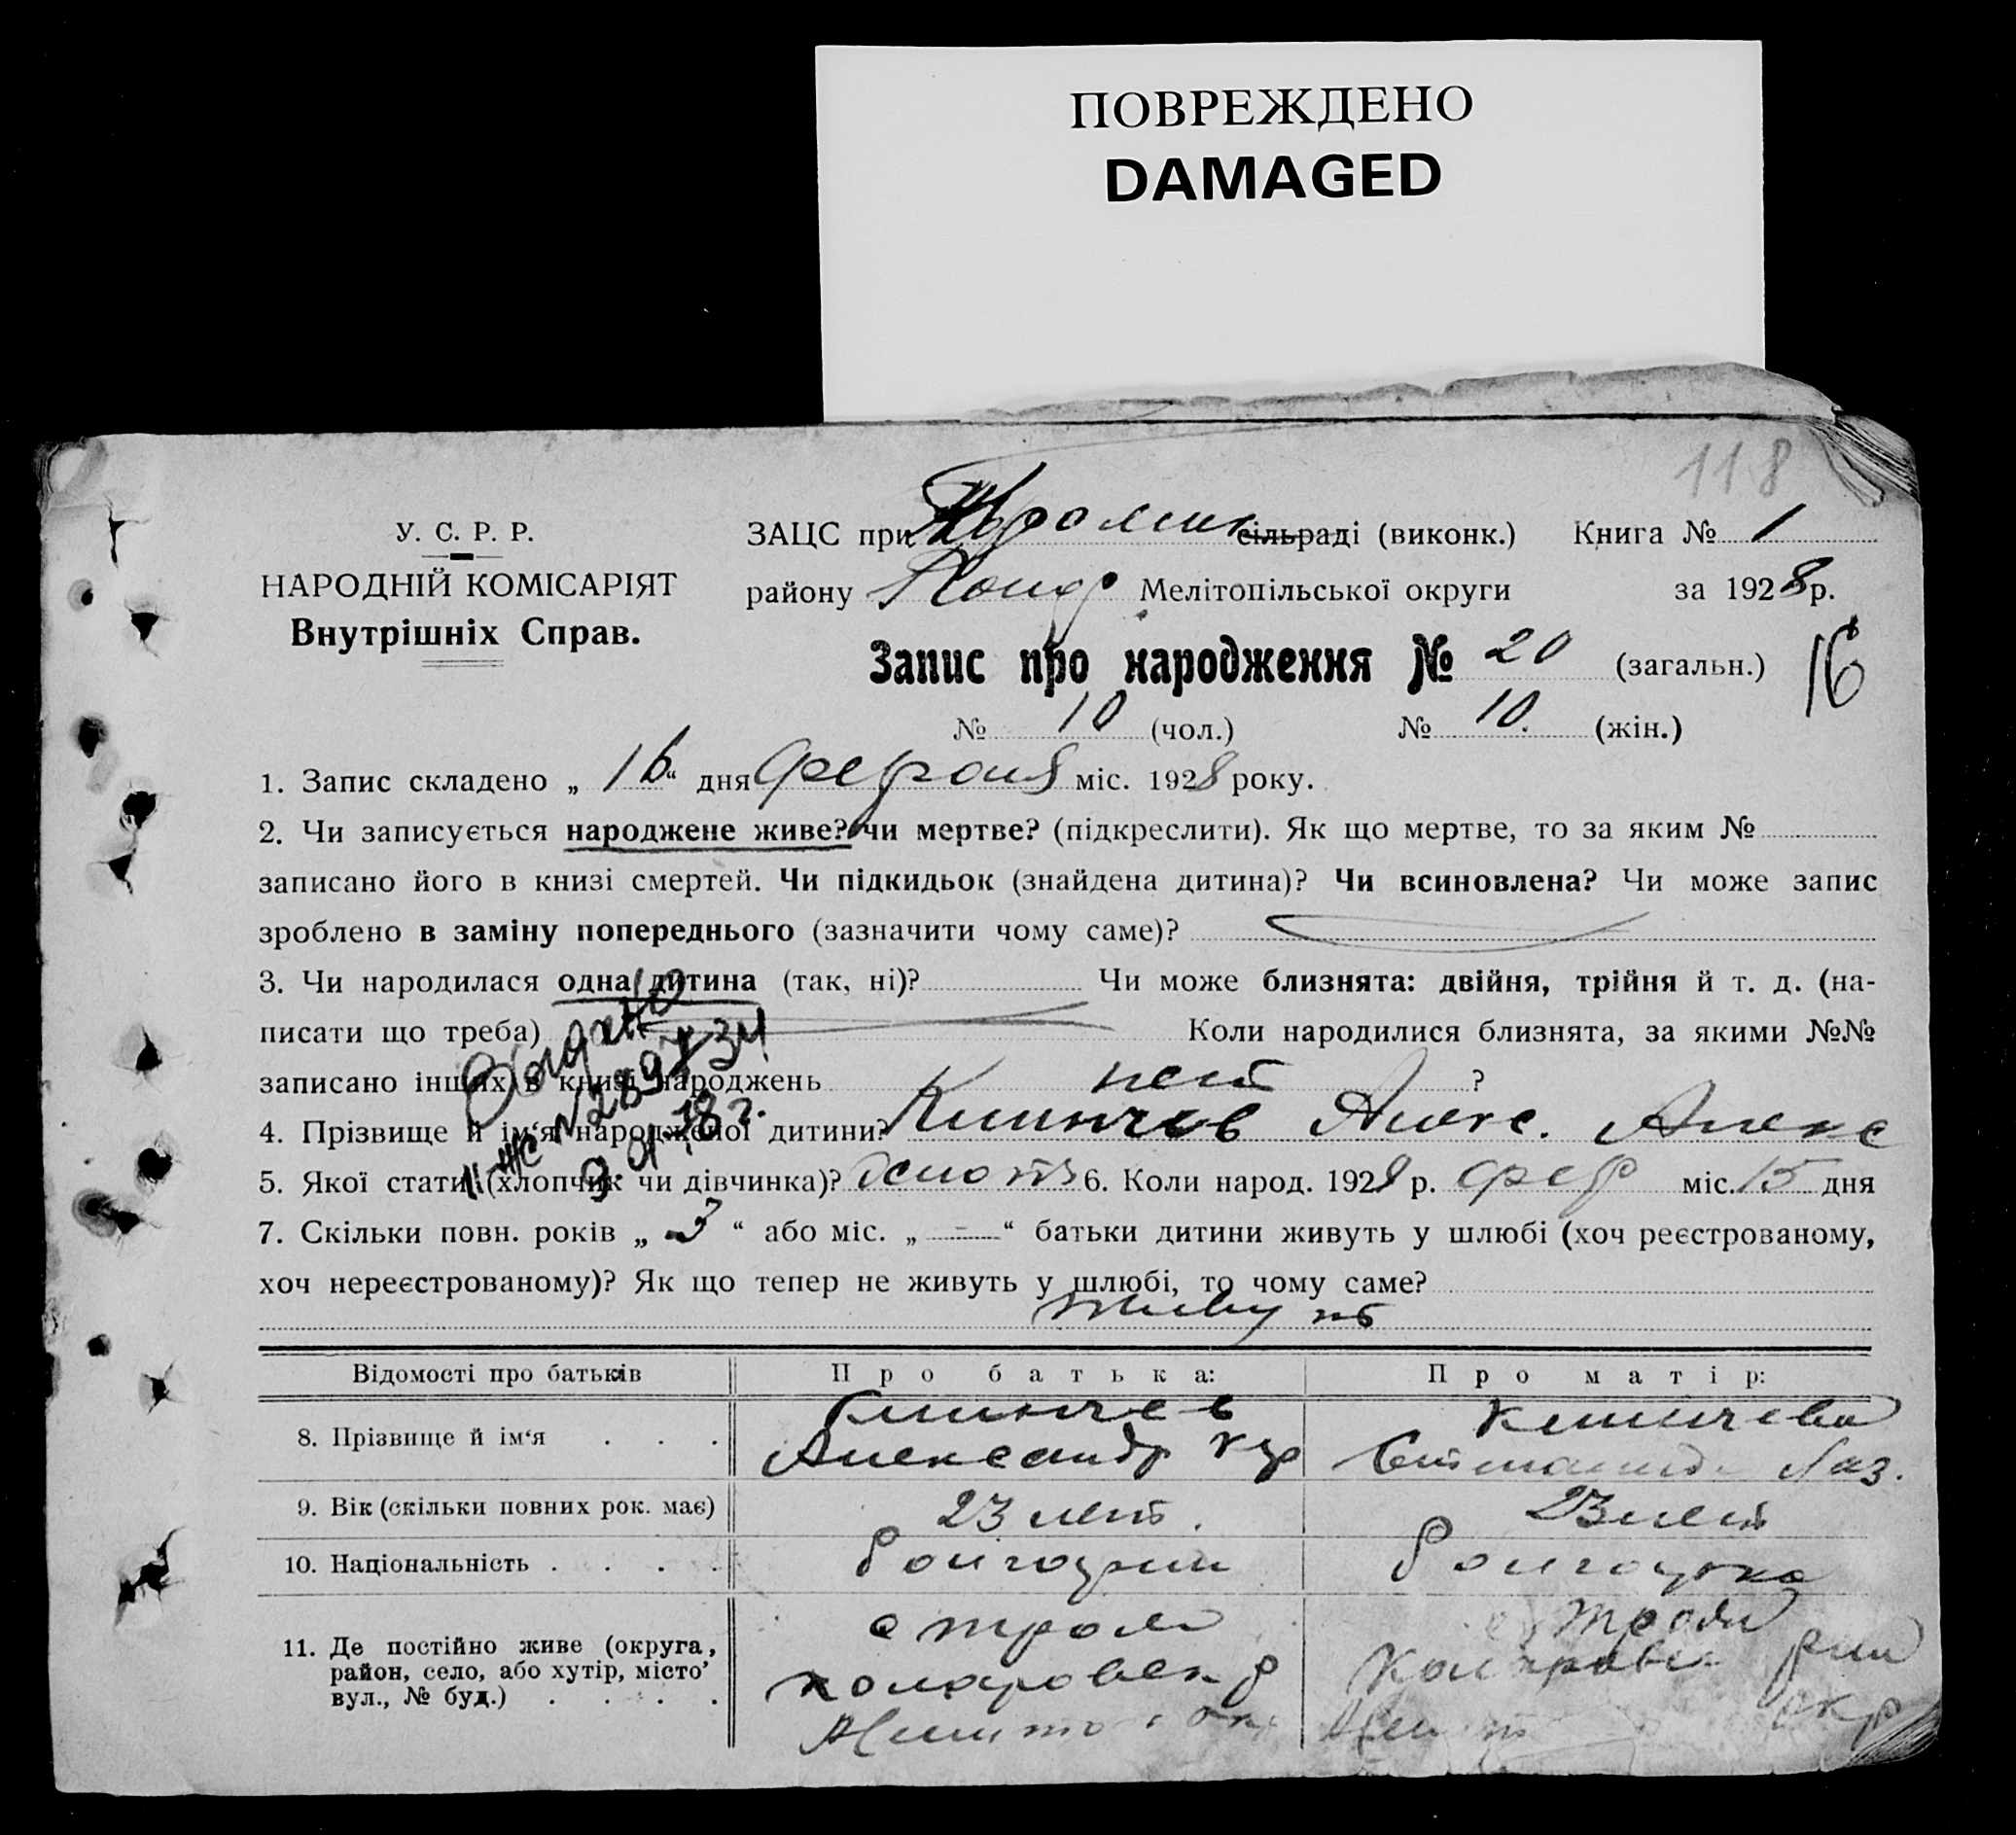 ПОВРЕЖДЕНО
DAMAGED
118
У. С. Р. Р.
НАРОДНІЙ КОМІСАРІЯТ
Внутрішніх Справ.
ЗАЦС при сільраді (виконк.) Книга № 1
району Мелітопільської округи за 1928 р.
Запис про народження № 20 (загальн.)
16
№ 10 (чол.) № 10. (жін.)
1. Запис складено „ 16 “ дня февраля міс. 1928 року.
2. Чи записується народжене живе? чи мертве? (підкреслити). Як що мертве, то за яким №
записано його в книзі смертей. Чи підкидьок (знайдена дитина)? Чи всиновлена? Чи може запис
зроблено в заміну попереднього (зазначити чому саме)?
3. Чи народилася одна дитина (так, ні)? Чи може близнята: двійня, трійня й т. д. (на-
писати що треба) Коли народилися близнята, за якими №№
записано інших в книзі народжень нет ?
4. Прізвище й ім‘я народженої дитини? Климчев Алекс. Алекс
5. Якої статі (хлопчик чи дівчинка)? 6. Коли народ. 1928 р. фев міс. 15 дня
7. Скільки повн. років „ 3 “ або міс. „ — “ батьки дитини живуть у шлюбі (хоч реєстрованому,
хоч нереєстрованому)? Як що тепер не живуть у шлюбі, то чому саме?
живут
Відомості про батьків
Про батька:
Про матір:
8. Прізвище й ім‘я . . .
Климчев
Александр
Климчева
Лаз.
9. Вік (скільки повних рок. має)
23 лет.
23 лет
10. Національність . . . .
болгарин
болгарка
11. Де постійно живе (округа,
район, село, або хутір, місто,
вул., № буд.) . . . .
с Трояны
с Трояны
окр